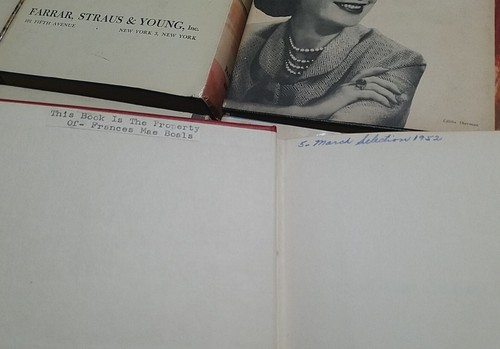 FARRAR, STRAUS & YOUNG, Inc.
101 FIFTH AVENUE NEW YORK 3, NEW YORK
This Book Is The Property
Of- Frances Mae Boals
5- March Selection 1952